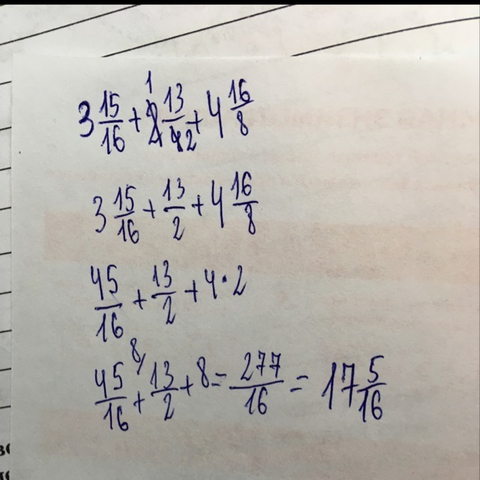 1
3 15/16 + 2 13/42 + 4 16/8
3 15/16 + 13/2 + 4 16/8
45/16 + 13/2 + 4 · 2
45/16 + 8/ 13/2 + 8 = 277/16 = 17 5/16